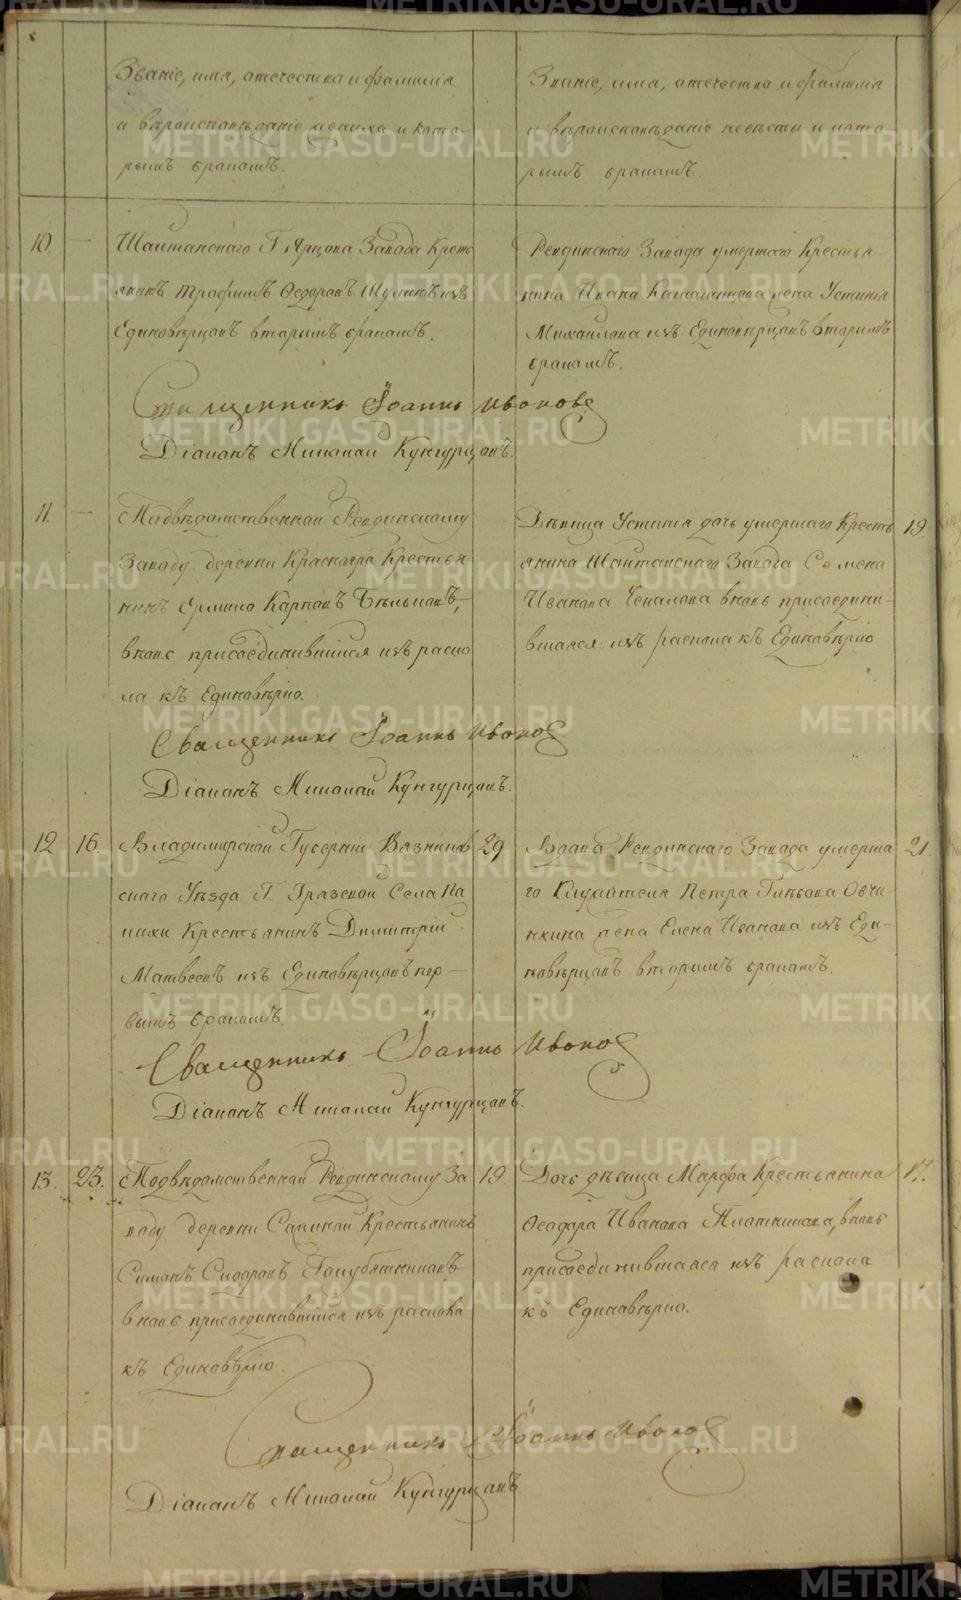 Званіе, имя, отечество и фамилія
и вѣроисповѣданіе жениха и кото-
рымъ бракомъ.
Званіе, имя, отечество и фамилія
и вѣроисповѣданіе невѣсты и кото
рымъ бракомъ.
10. —
Шайтанскаго Г. Ярцова Завода Кресть
янинъ Трофимъ Ѳедоровъ изъ
Единовѣрцовъ вторымъ бракомъ.
Ревдинскаго Завода умершаго Крестья-
нина Ивана жена Устинія
Михайлова изъ Единовѣрцовъ вторымъ
бракомъ.
Священникъ Іоаннъ Ивонов
Діаконъ Николай Кунгурцовъ.
11. —
Подвѣдомственной Ревдинскому
Заводу деревни Красноярa Крестья
нинъ Ермило Карповъ Бѣльковъ,
вновь присоединившійся изъ раско
ла къ Единовѣрію.
Дѣвица Устинія дочь умершаго Кресть
янина Шайтанскаго Завода Семена
Иванова вновь присоедини-
вшаяся изъ раскола къ Единовѣрію
19
Священникъ Іоаннъ Ивонов
Діаконъ Николай Кунгурцовъ.
12 16.
Владимирской Губерніи Вязников
скаго Уѣзда Г. Грязевой Села
Крестьянинъ Димитрій
Матвеевъ изъ Единовѣрцовъ пер-
вымъ бракомъ.
29
Вдова Ревдинскаго Завода умерша
го Петра Глѣбова Овчи-
нкина жена Елена Иванова изъ Еди-
новѣрцовъ вторымъ бракомъ.
21.
Священникъ Іоаннъ Ивонов
Діаконъ Николай Кунгурцовъ.
13. 23.
Подвѣдомственной Ревдинскому За
воду деревни Крестьянинъ
Симонъ Сидоровъ
вновь присоединившійся изъ раскола
къ Единовѣрію.
19
Дочь дѣвица Марфа Крестьянина
Ѳеодора Иванова Плотникова, вновь
присоединившаяся изъ раскола
къ Единовѣрію.
17.
Священникъ Іоаннъ Ивонов
Діаконъ Николай Кунгурцовъ
METRIKI.GASO-URAL.RU